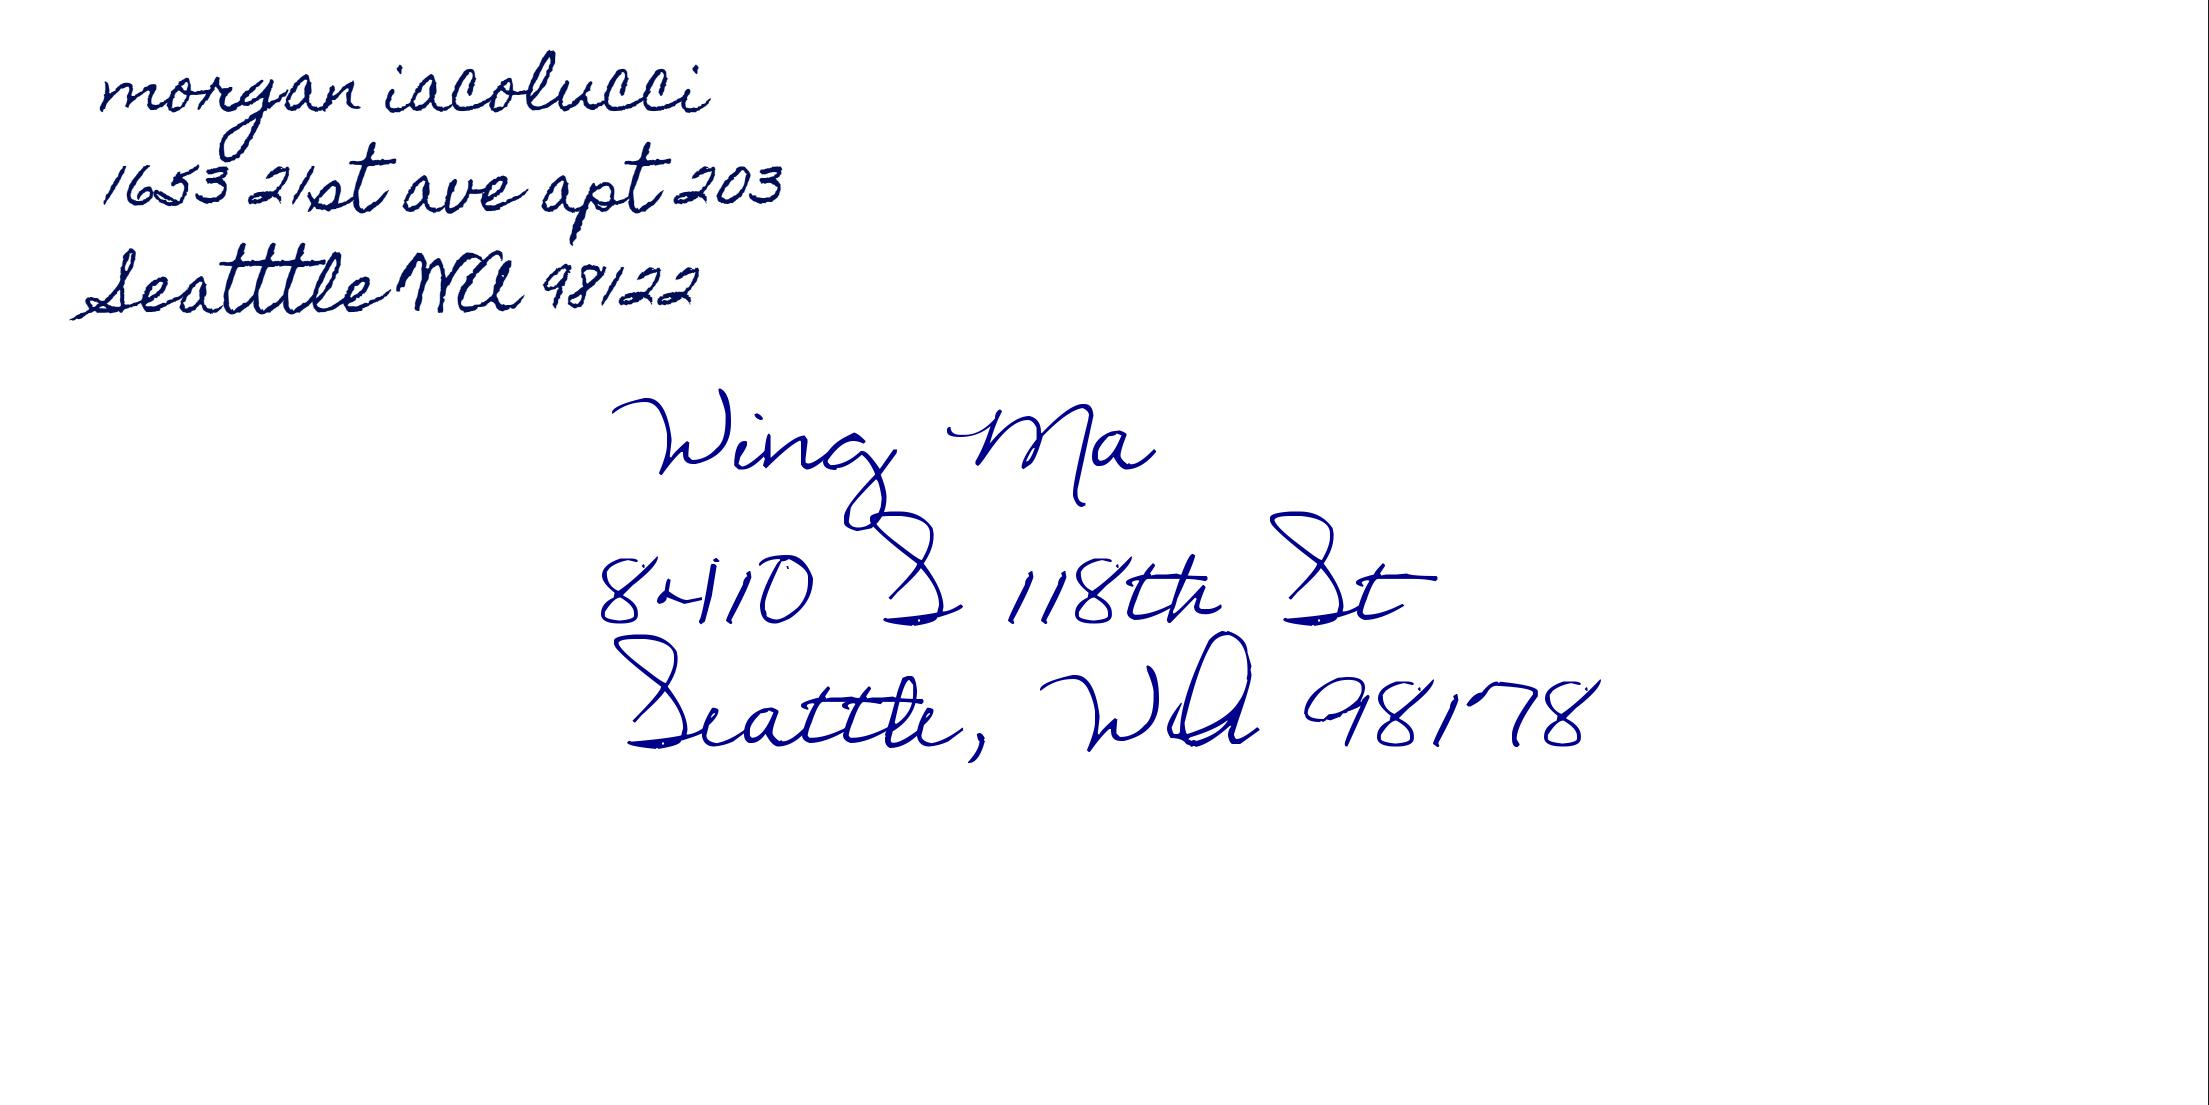 morgan iacolucci
1653 21st ave apt 203
Seatttle WA 98122
Wing Ma
8410 S 118th St
Seattle, WA 98178